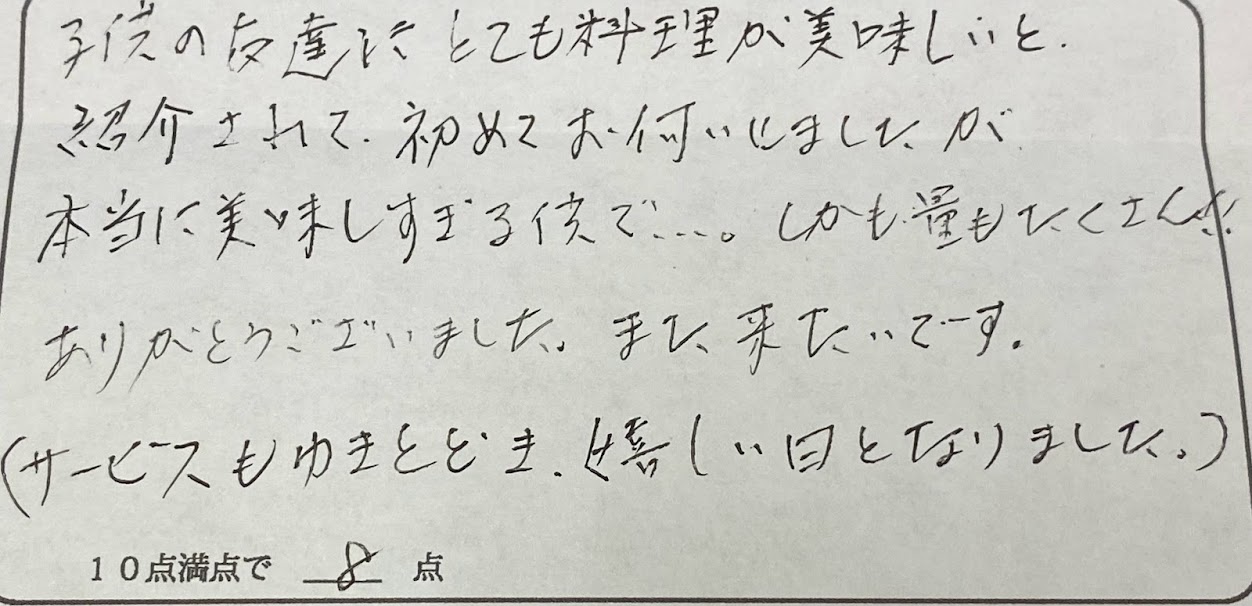 子供の友達にとても料理が美味しいと、
紹介されて、初めてお伺いしましたが
本当に美味しすぎる位で…。しかも量もたくさん!!
ありがとうございました。また来たいです。
(サービスもゆきとどき、嬉しい日となりました。)
10点満点で 8 点